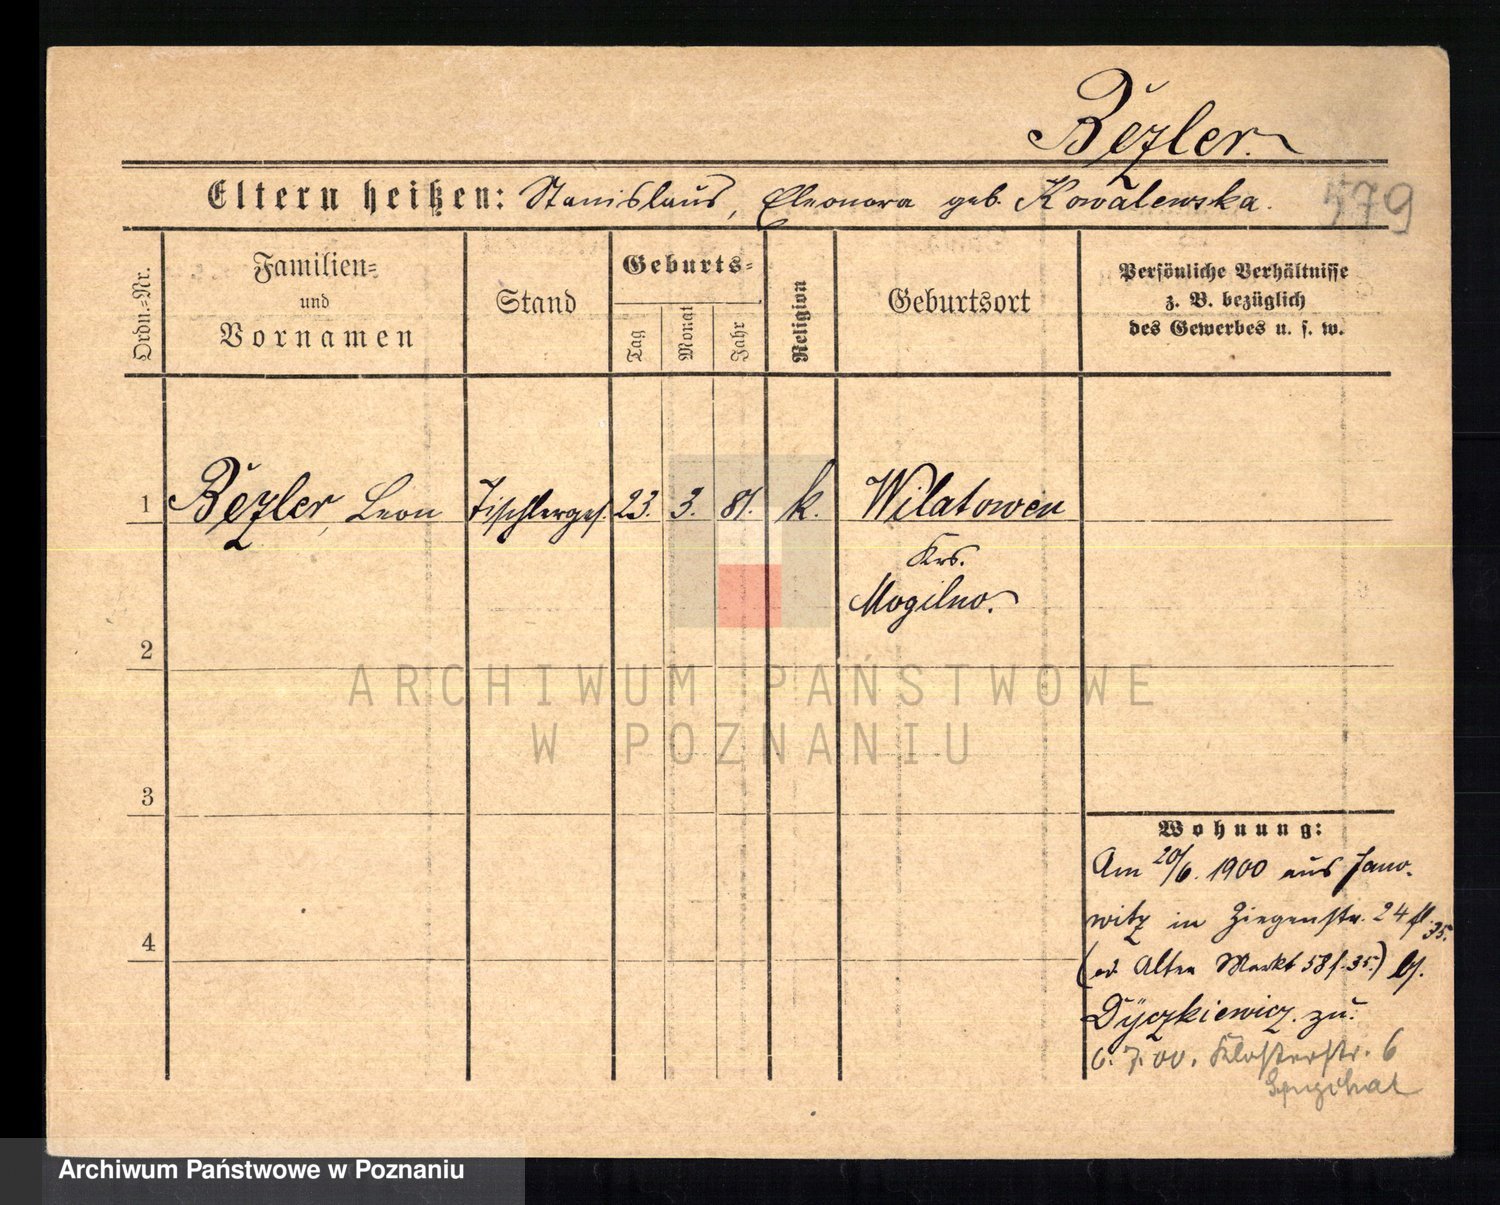 Bezler.
Eltern heißen: Stanislaus, Eleonora geb. Kowalewska.
579
Ordn.=Nr.
Familien=
und
Vornamen
Stand
Geburts=
Tag
Monat
Jahr
Religion
Geburtsort
Persönliche Verhältnisse
z. B. bezüglich
des Gewerbes u. s. w.
1 Bezler, Leon Tischlerges. 23. 3. 81. k. Wilatowen
Krs.
Mogilno.
2
ARCHIWUM PAŃSTWOWE
W POZNANIU
3
Wohnung:
Am 20/6. 1900 aus Jano-
witz in Ziegenstr. 24
35.
4
Alten Markt 58 35.) bs.
Dyczkiewicz. zu.
6. 7. 00. Klosterstr. 6
Archiwum Państwowe w Poznaniu